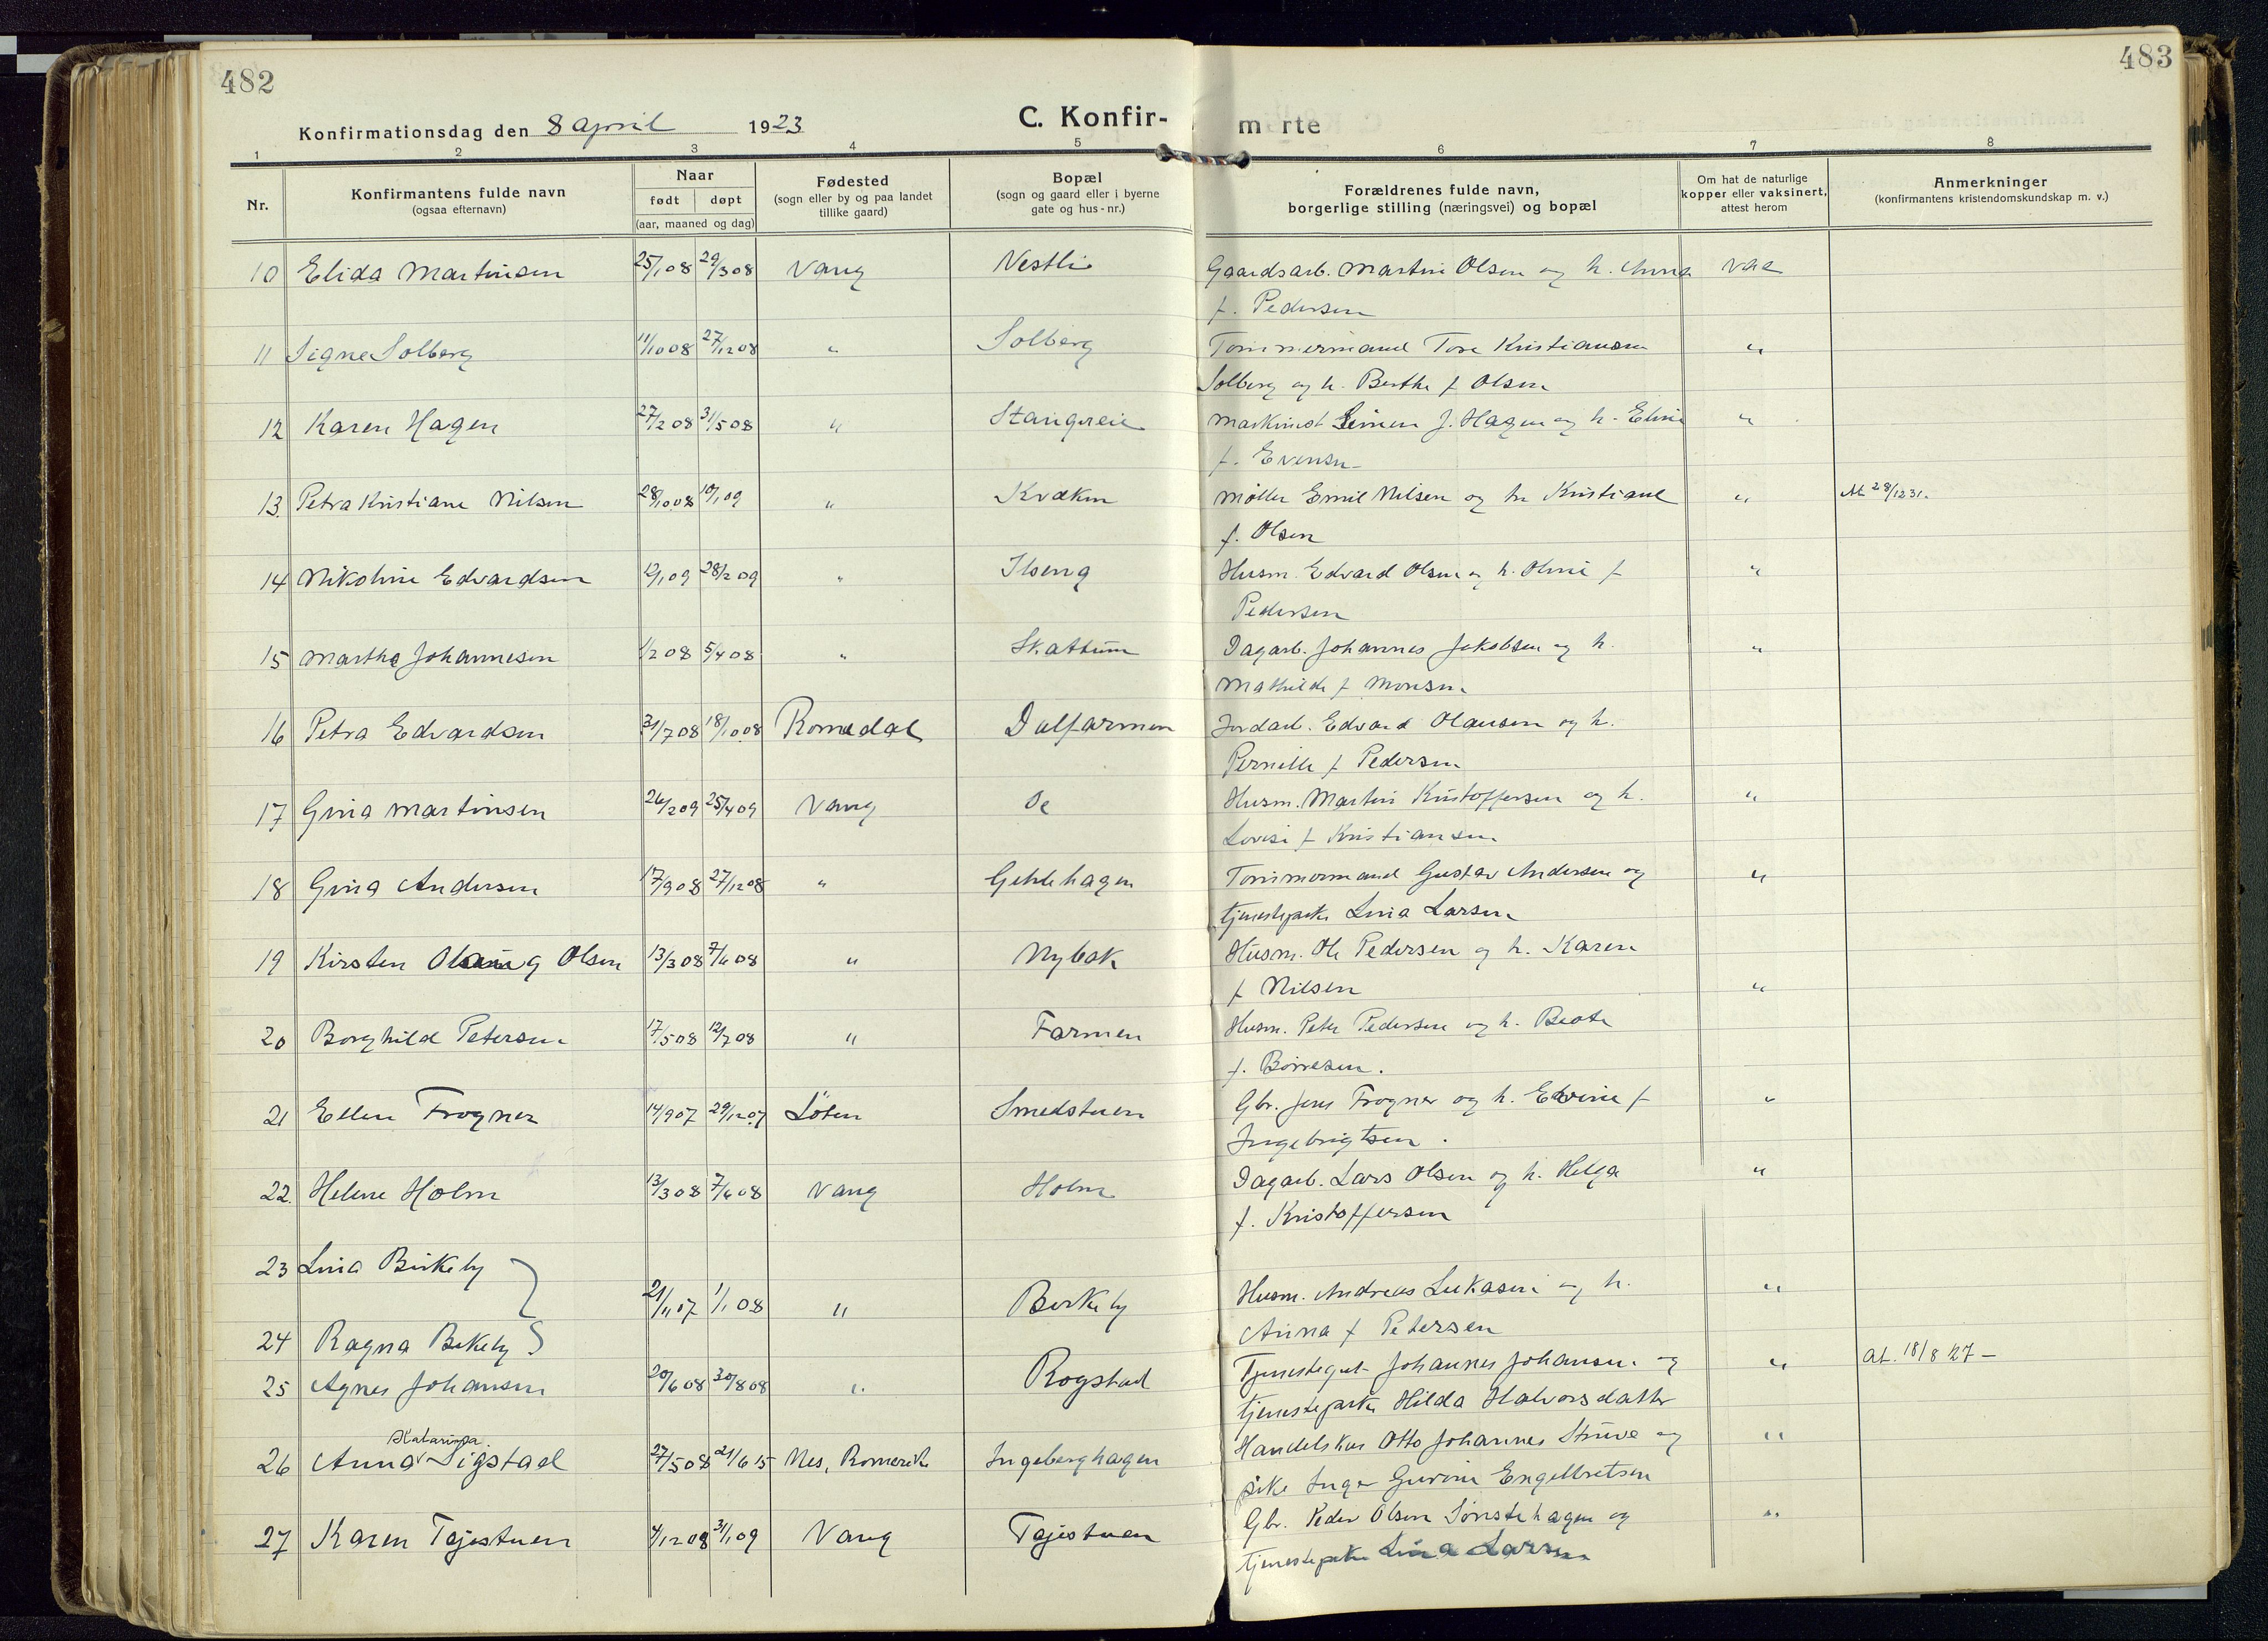 482
483
Konfirmationsdag den 8 april 1923
C. Konfir- m rte
1 2 3 4 5 6 7 8
Nr.
Konfirmantens fulde navn
(ogsaa efternavn)
Naar
født døpt
(aar, maaned og dag)
Fødested
(sogn eller by og paa landet
tillike gaard)
Bopæl
(sogn og gaard eller i byerne
gate og hus-nr.)
Forældrenes fulde navn,
borgerlige stilling (næringsvei) og bopæl
Om hat de naturlige
kopper eller vaksinert,
attest herom
Anmerkninger
(konfirmantens kristendomskundskap m. v.)
10 Elida Martinsen 25/1 08 29/3 08 Vang Vestli Gaardsarb. Martin Olsen og h. Anna vac
f. Pedersen
11 Signe Solberg 11/10 08 27/12 08 " Solberg Tømmermand Tore Kristiansen "
Solberg og h. Berthe f Olsen
12 Karen Hagen 27/2 08 31/5 08 " Stangereie Maskinist Simen J. Hagen og h. Eline "
f. Evensen
13. Petra Kristiane Nilsen 28/10 08 10/1 09 " Kvækin Møller Emil Nilsen og h. Kristiane " At 28/12 31.
f. Olsen
14 Nikoline Edvardsen 12/1 09 28/2 09 " Ilseng Husm. Edvard Olsen og h. Oline f "
Pedersen
15 Marthe Johannesen 1/2 08 5/4 08 " Skattum Dagarb. Johannes Jakobsen og h. "
Mathilde f Monsen
16 Petra Edvardsen 31/7 08 18/10 08 Romedal Dalfarmen Jordarb. Edvard Olausen og h.
Pernille f Pedersen
17 Gina Martinsen 26/2 09 25/4 09 Vang Husm. Martin Kristoffersen og h. "
Lovise f Kristiansen
18 Gina Andersen 17/9 08 27/12 08 " Tømmermand Gustav Andersen og "
tjenestepike Lina Larsen
19 Kirsten Olsen 13/3 08 7/6 08 " Nybak Husm. Ole Pedersen og h. Karen
f Nilsen "
20 Borghild Petersen 17/5 08 12/7 08 " Farmen Husm. Peter Pedersen og h. Beate
f. Børresen.
21 Ellen Frogner 14/9 07 29/12 07 Löten Smedstuen Gbr. Jens Frogner og h. Edvine f "
Ingebrigtsen.
22. Helene Holm 13/3 08 7/6 08 Vang Holm Dagarb. Lars Olsen og h. Helga "
f. Kristoffersen
23 Lina Birkeby
21/11 07 1/1 08 " Birkeby Husm. Andreas Lukasen og h. "
24 Ragna Birkeby Anna f Petersen
25 Agnes Johansen 20/6 08 30/8 08 " Rogstad Tjenestegut Johannes Johansen og " At. 18/8 27 –
tjenestepike Hilda Halvorsdatter
Katarina
26 Anna Sigstad 27/5 08 21/6 15 Nes, Romerike Ingeberghagen Handelskar Otto Johannes Struve og "
pike Inga Gurine Engelbretsen
27 Karen Tøjestuen 4/12 08 31/1 09 Vang Tøjestuen Gbr. Peder Olsen Sønstehagen og "
tjenestepike Lina Larsen